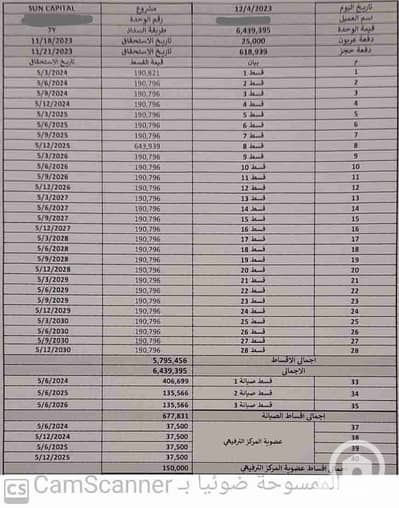 تاريخ اليوم 12/4/2023 مشروع SUN CAPITAL
اسم العميل رقم الوحدة
قيمة الوحدة 6,439,395 طريقة السداد 7Y
دفعة عربون 25,000 تاريخ الاستحقاق 11/18/2023
دفعة حجز 618,939 تاريخ الاستحقاق 11/21/2023
م بيان قيمة القسط تاريخ الاستحقاق
1 قسط 1 190,821 5/3/2024
2 قسط 2 190,796 5/6/2024
3 قسط 3 190,796 5/9/2024
4 قسط 4 190,796 5/12/2024
5 قسط 5 190,796 5/3/2025
6 قسط 6 190,796 5/6/2025
7 قسط 7 190,796 5/9/2025
8 قسط 8 643,939 5/12/2025
9 قسط 9 190,796 5/3/2026
10 قسط 10 190,796 5/6/2026
11 قسط 11 190,796 5/9/2026
12 قسط 12 190,796 5/12/2026
13 قسط 13 190,796 5/3/2027
14 قسط 14 190,796 5/6/2027
15 قسط 15 190,796 5/9/2027
16 قسط 16 190,796 5/12/2027
17 قسط 17 190,796 5/3/2028
18 قسط 18 190,796 5/6/2028
19 قسط 19 190,796 5/9/2028
20 قسط 20 190,796 5/12/2028
21 قسط 21 190,796 5/3/2029
22 قسط 22 190,796 5/6/2029
23 قسط 23 190,796 5/9/2029
24 قسط 24 190,796 5/12/2029
25 قسط 25 190,796 5/3/2030
26 قسط 26 190,796 5/6/2030
27 قسط 27 190,796 5/9/2030
28 قسط 28 190,796 5/12/2030
اجمالي الاقساط 5,795,456
الاجمالي 6,439,395
33 قسط صيانة 1 406,699 5/6/2024
34 قسط صيانة 2 135,566 5/6/2025
35 قسط صيانة 3 135,566 5/6/2026
اجمالي اقساط الصيانة 677,831
37 عضوية المركز الترفيهي 37,500 5/6/2024
38 37,500 5/12/2024
39 37,500 5/6/2025
40 37,500 5/12/2025
اجمالي اقساط عضوية المركز الترفيهي 150,000
الممسوحة ضوئيا بـ CamScanner
CS